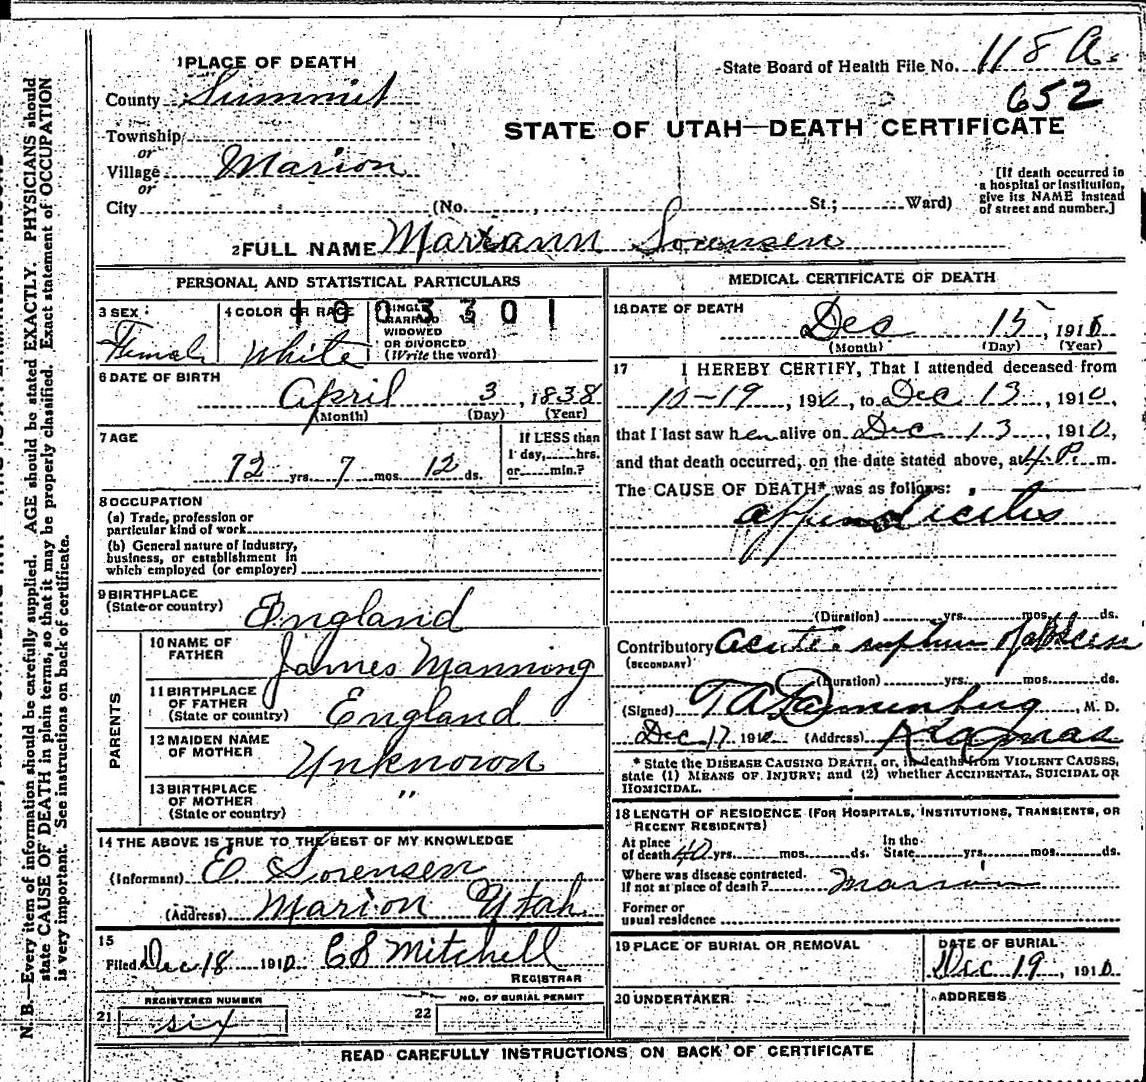 1 PLACE OF DEATH
State Board of Health File No. 118 A.
652
County Summit
STATE OF UTAH—DEATH CERTIFICATE
Township
or
Village Marion
or
City (No. , St.; Ward)
[If death occurred in
a hospital or institution,
give its NAME instead
of street and number.]
2 FULL NAME Mariann Sorensen
PERSONAL AND STATISTICAL PARTICULARS
1003301
3 SEX Female
4 COLOR OR RACE White
5 SINGLE
MARRIED
WIDOWED
OR DIVORCED
(Write the word)
6 DATE OF BIRTH
April 3, 1838
(Month) (Day) (Year)
7 AGE
72 yrs. 7 mos. 12 ds.
If LESS than
1 day, hrs.
or min.?
8 OCCUPATION
(a) Trade, profession or
particular kind of work
(b) General nature of Industry,
business, or establishment in
which employed (or employer)
9 BIRTHPLACE
(State or country) England
PARENTS
10 NAME OF
FATHER James Manning
11 BIRTHPLACE
OF FATHER
(State or country) England
12 MAIDEN NAME
OF MOTHER Unknown
13 BIRTHPLACE
OF MOTHER
(State or country) "
14 THE ABOVE IS TRUE TO THE BEST OF MY KNOWLEDGE
(Informant) E Sorensen
(Address) Marion Utah
15
Filed Dec 18 1910 CS Mitchell
REGISTRAR
REGISTERED NUMBER
21 six
NO. OF BURIAL PERMIT
22
MEDICAL CERTIFICATE OF DEATH
16 DATE OF DEATH
Dec 15, 1910
(Month) (Day) (Year)
17 I HEREBY CERTIFY, That I attended deceased from
, 191 , to Dec 13, 1910,
that I last saw her alive on Dec 13, 1910,
and that death occurred, on the date stated above, at 4 P. m.
The CAUSE OF DEATH* was as follows:
appendicitis
(Duration) yrs. mos. ds.
Contributory acute of abscess
(SECONDARY)
(Duration) yrs. mos. ds.
(Signed) T A Dannenberg, M. D.
Dec 17 1910 (Address) Kamas
* State the DISEASE CAUSING DEATH, or, in deaths from VIOLENT CAUSES,
state (1) MEANS OF INJURY; and (2) whether ACCIDENTAL, SUICIDAL OR
HOMICIDAL.
18 LENGTH OF RESIDENCE (FOR HOSPITALS, INSTITUTIONS, TRANSIENTS, OR
RECENT RESIDENTS)
At place
of death 40 yrs. mos. ds.
In the
State yrs. mos. ds.
Where was disease contracted.
If not at place of death? Marion
Former or
usual residence
19 PLACE OF BURIAL OR REMOVAL
DATE OF BURIAL
Dec 19, 1910
20 UNDERTAKER
ADDRESS
READ CAREFULLY INSTRUCTIONS ON BACK OF CERTIFICATE
N. B.—Every item of information should be carefully supplied. AGE should be stated EXACTLY. PHYSICIANS should
state CAUSE OF DEATH in plain terms, so that it may be properly classified. Exact statement of OCCUPATION
is very important. See instructions on back of certificate.